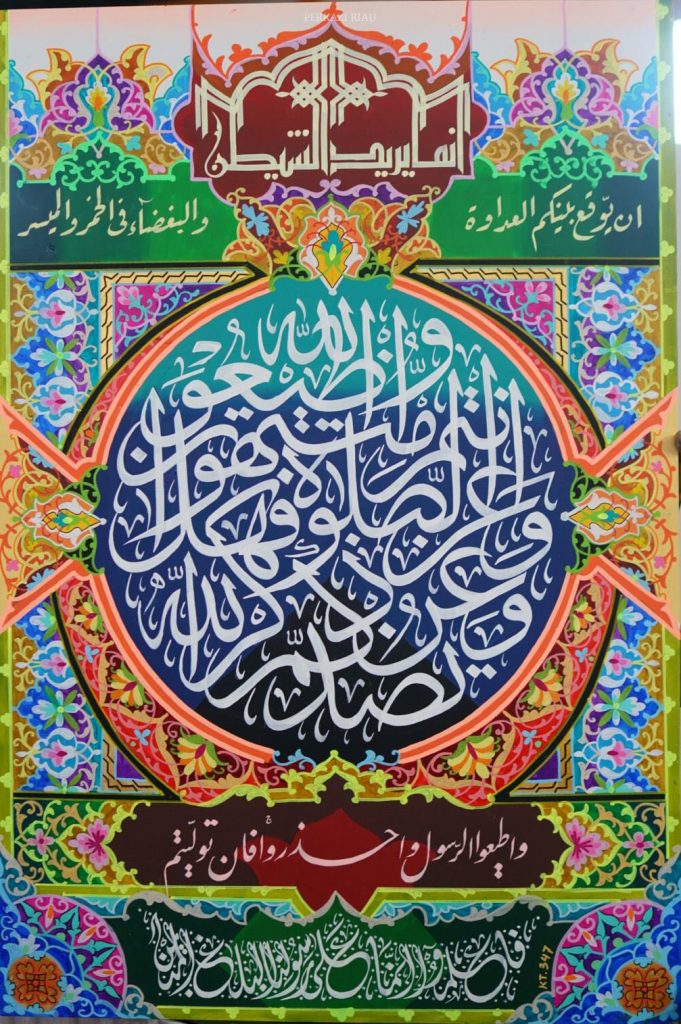 PERKAZI RIAU
انما يريد الشيطن
ان يّوقع بينكم العداوة والبغضآء فى الخمر والميسر
ويصدّكم عن ذكر اللّه وعن الصّلوة فهل انتم منتهون واطيعوا اللّه
واطيعوا الرّسول واحذروا فان تولّيتم
فاعلموا انّما على رسولنا البلاغ المبين
KT.347